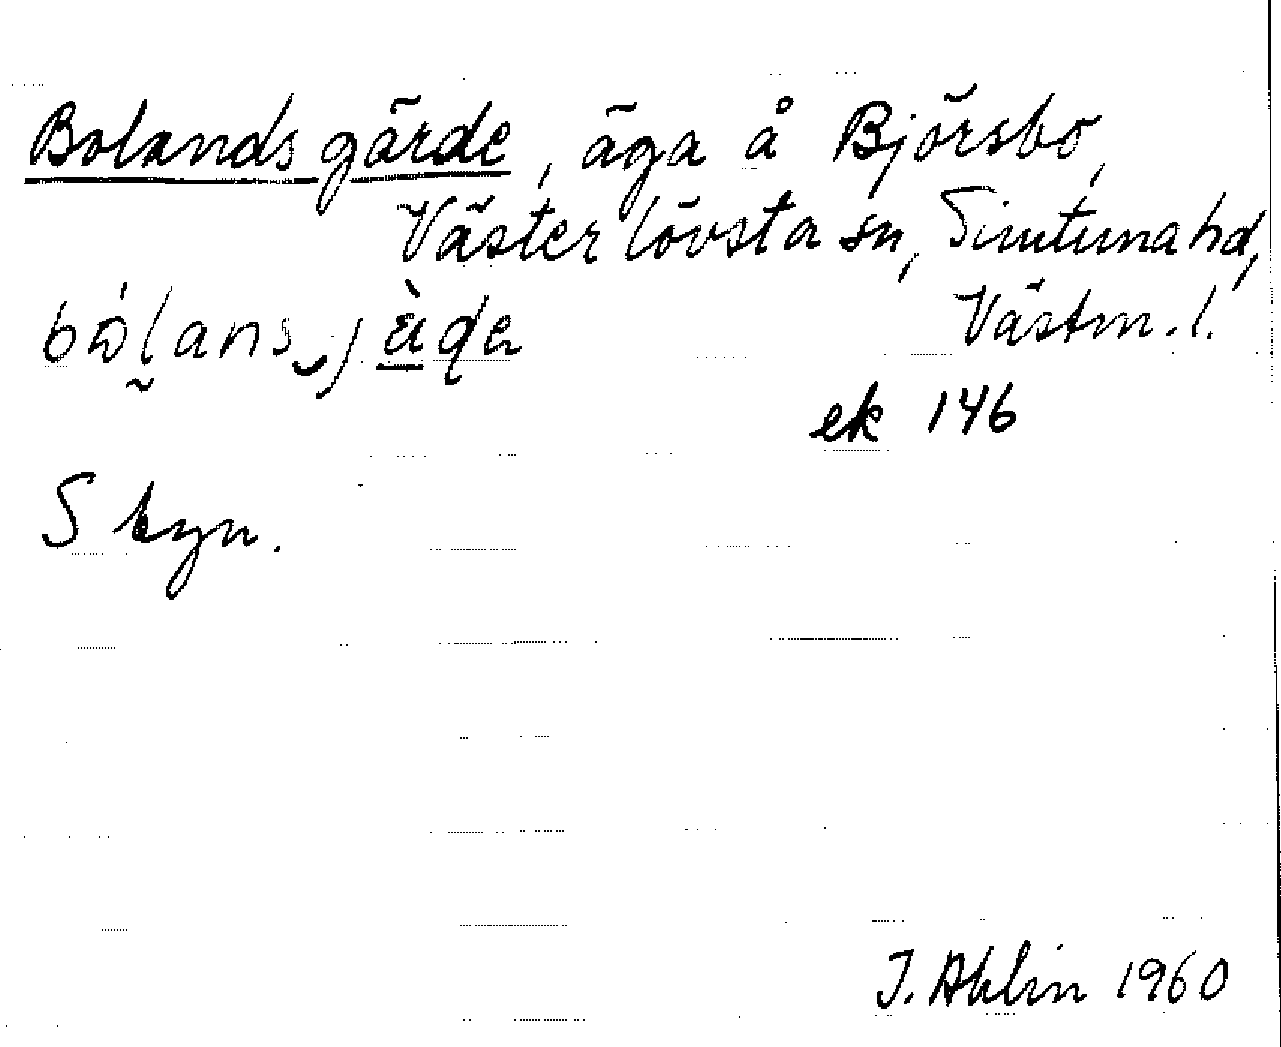 Bolandsgärde, äga å Björsbo,
Västerlövsta sn, Simtuna hd,
Västm. l.
ek 146
S byn.
I. Ahlin 1960